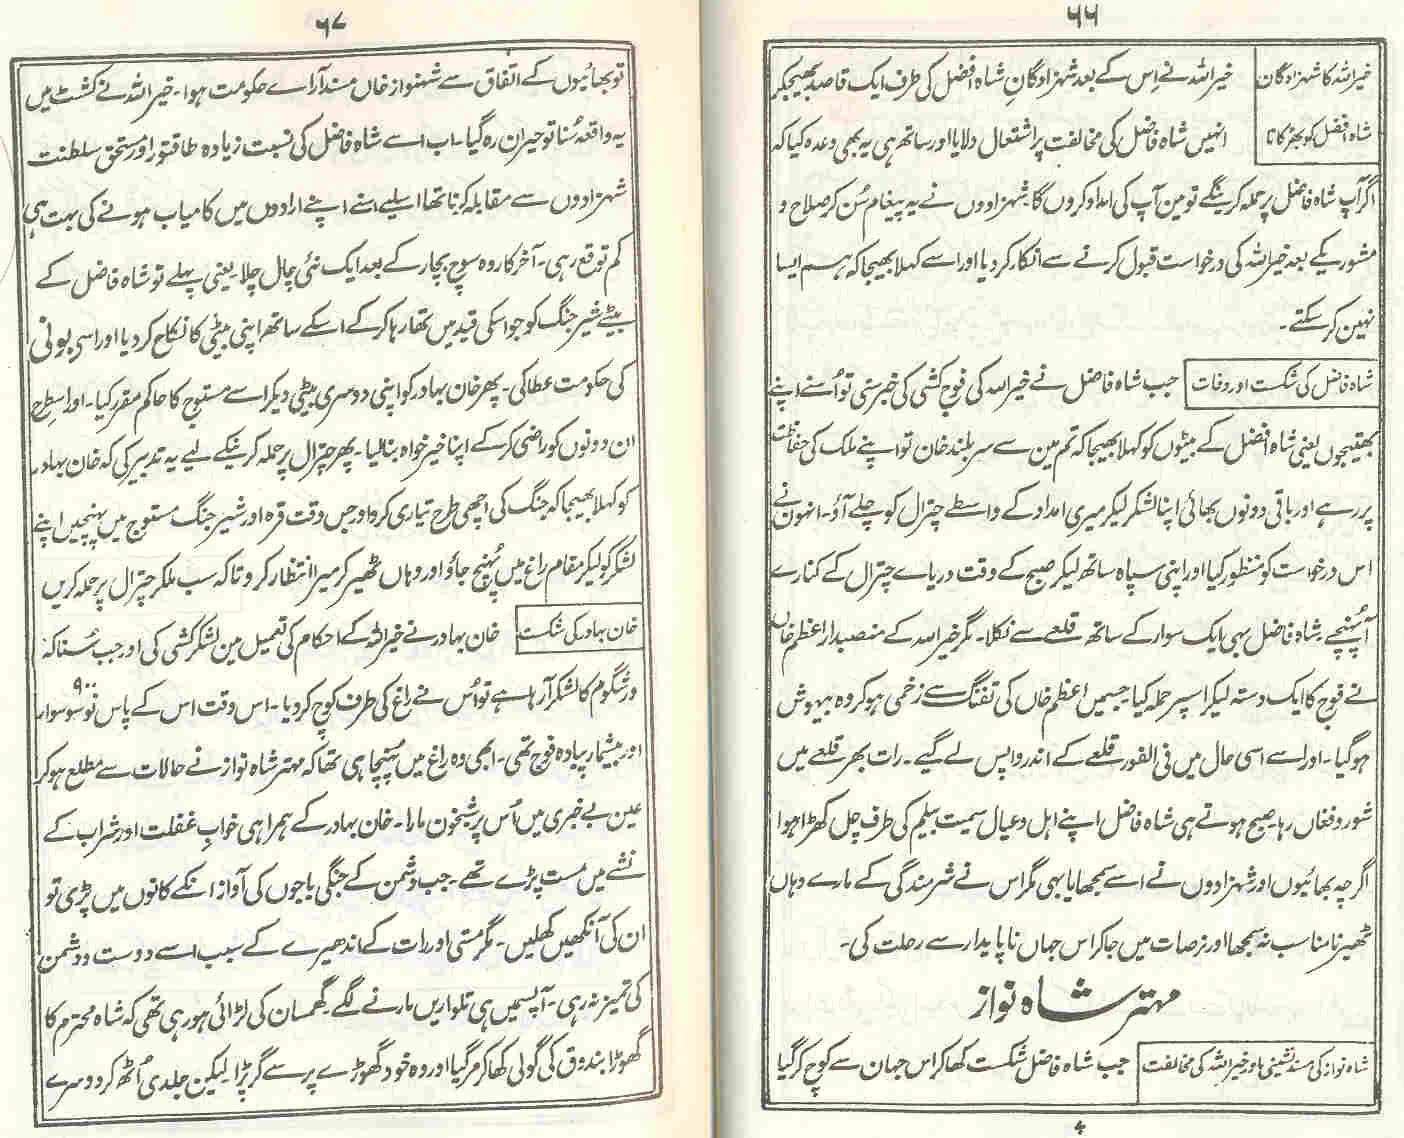 ۶۶
خیر اللہ کا شہزادگان
شاہ افضل کو بھڑکانا
خیر اللہ نے اِس کے بعد شہزادگانِ شاہ افضل کی طرف ایک قاصد بھیجکر
انہیں شاہ فاضل کی مخالفت پر اشتعال دلایا اور ساتھ ہی یہ بھی وعدہ کیا کہ
اگر آپ شاہ فاضل پر حملہ کرینگے تو مین آپ کی امداد کروں گا۔ شہزادوں نے یہ پیغام سُن کر صلاح و
مشوریکے بعد خیر اللہ کی درخواست قبول کرنے سے انکار کر دیا اور اسے کہلا بھیجا کہ ہم ایسا
نہین کر سکتے۔
شاہ فاضل کی شکست اور وفات
جب شاہ فاضل نے خیر اللہ کی فوج کشی کی خبر سنی تو اُسنے اپنے
بھتیجوں یعنی شاہ افضل کے بیٹوں کو کہلا بھیجا کہ تم مین سے سر بلند خان تو اپنے ملک کی حفاظت
پر رہے اور باقی دونوں بھائی اپنا لشکر لیکر میری امداد کے واسطے چترال کو چلے آؤ۔ انہون نے
اس درخواست کو منظور کیا اور اپنی سپاہ ساتھ لیکر صبح کے وقت دریاے چترال کے کنارے
آپُہنچے۔ شاہ فاضل بہی ایک سوار کے ساتھ قلعے سے نکلا۔ مگر خیر اللہ کے منصبدار اعظم خاں
نے فوج کا ایک دستہ لیکر اسپر حملہ کیا۔ جسمیں اعظم خاں کی تفنگ سے زخمی ہو کر وہ بیہوش
ہو گیا۔ اور اسے اسی حال میں فی الفور قلعے کے اندر واپس لے گیے۔ رات بھر قلعے میں
شور و فغاں رہا۔ صبح ہوتے ہی شاہ فاضل اپنے اہل و عیال سمیت بیلم کی طرف چل کھڑا ہوا
اگرچہ بھائیوں اور شہزادوں نے اسے سمجھایا بہی مگر اس نے شرمندگی کے مارے وہاں
ٹھیرنا مناسب نہ سمجھا اور نرصات میں جا کر اس جہاں ناپایدار سے رحلت کی۔
مہتر شاہ نواز
شاہ نواز کی مسند نشینی اور خیر اللہ کی مخالفت
جب شاہ فاضل شکست کھا کر اس جہان سے کوچ کر گیا
۶۷
تو بھائیوں کے اتفاق سے شہنواز خاں مسند آراے حکومت ہوا۔ خیر اللہ نے کشٹ میں
یہ واقعہ سُنا تو حیران رہ گیا۔ اب اسے شاہ فاضل کی نسبت زیادہ طاقتور اور مستحق سلطنت
شہزادوں سے مقابلہ کرنا تھا اسلیے اسنے اپنے ارادوں میں کامیاب ہونے کی بہت ہی
کم توقع رہی۔ آخر کار وہ سوچ بچار کے بعد ایک نئی چال چلا۔ یعنی پہلے تو شاہ فاضل کے
بیٹے شیر جنگ کو جو اسکی قید میں تھا رہا کر کے اسکے ساتھ اپنی بیٹی کا نکاح کر دیا اور اسے بونی
کی حکومت عطا کی۔ پھر خان بہادر کو اپنی دوسری بیٹی دیکر اسے مستوج کا حاکم مقرر کیا۔ اور اسطرح
ان دونوں کو راضی کر کے اپنا خیر خواہ بنا لیا۔ پھر چترال پر حملہ کرنیکے لیے یہ تدبیر کی کہ خان بہادر
کو کہلا بھیجا کہ جنگ کی اچھی طرح تیاری کرو اور جس وقت قرہ اور شیر جنگ مستوج میں پہنچیں اپنے
لشکر کو لیکر مقام راغ میں پُہنچ جاؤ اور وہاں ٹھیر کر میرا انتظار کرو تا کہ سب ملکر چترال پر حملہ کریں
خان بہادر کی شکست
خان بہادر نے خیر اللہ کے احکام کی تعمیل مین لشکر کشی کی اور جب سُنا کہ
ورشگوم کا لشکر آ رہا ہے تو اُس نے راغ کی طرف کوچ کر دیا۔ اس وقت اس کے پاس نو سو ۹۰۰ سوار
اور بیشمار پیادہ فوج تھی۔ ابھی وہ راغ میں پُہنچا ہی تھا کہ مہتر شاہ نواز نے حالات سے مطلع ہو کر
عین بے خبری میں اُس پر شبخون مارا۔ خان بہادر کے ہمراہی خوابِ غفلت اور شراب کے
نشے میں مست پڑے تھے۔ جب دشمن کے جنگی باجوں کی آواز انکے کانوں میں پڑی تو
ان کی آنکھیں کھلیں۔ مگر مستی اور رات کے اندھیرے کے سبب اسے دوست و دشمن
کی تمیز نہ رہی۔ آپسمیں ہی تلواریں مارنے لگے۔ گھمسان کی لڑائی ہو رہی تھی کہ شاہ محترم کا
گھوڑا بندوق کی گولی کھا کر مر گیا اور وہ خود گھوڑے پر سے گر پڑا۔ لیکن جلدی اُٹھ کر دوسرے